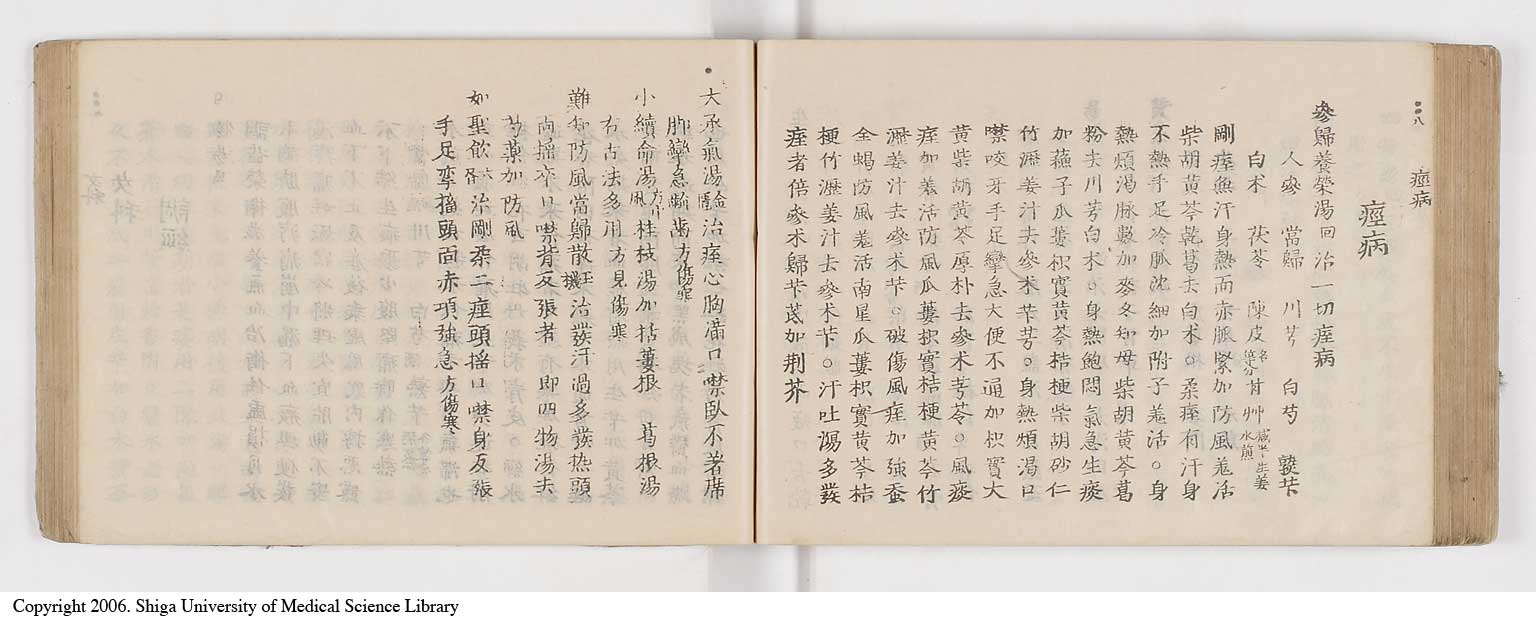 痙病
痙病
參歸養榮湯回 治一切痓病
人參 當歸 川芎 白芍 熟芐
白朮 茯苓 陳皮各等分 甘艸減半 生姜水煎
剛痓無汗身熱而赤脈緊加防風羗活
柴胡黃芩乾葛去白朮。柔痓有汗身
不熱手足冷脈沈細加附子羗活。身
熱煩渴脉數加麥冬知母柴胡黃芩葛
粉去川芎白朮。身熱飽悶氣急生痰
加蘓子瓜蔞枳實黃芩桔梗柴胡砂仁
竹瀝姜汁去參朮芐芎。身熱煩渴口
噤咬牙手足攣急大便不通加枳實大
黃柴胡黃芩厚朴去參朮芎苓。風痰
痓加羗活防風瓜蔞枳實桔梗黃芩竹
瀝姜汁去參朮芐。破傷風痓加強蚕
全蝎防風羗活南星瓜蔞枳實黃芩桔
梗竹瀝姜汁去參朮芐。汗吐瀉多發
痓者倍參朮歸芐芪加荆芥
大承氣湯金匱 治痓心胸滿口噤臥不著席
脚攣急齘齒方傷寒
小續命湯方中風 桂枝湯加括蔞根 葛根湯
右古法多用方見傷寒
難知防風當歸散 治發汗過多發热頭
面摇卒口噤背反張者 即四物湯去
芍藥加防風
如聖飲 治剛柔二痓頭摇口噤身反張
手足挛搐頭面赤項強急方傷寒
女科
Copyright 2006. Shiga University of Medical Science Library